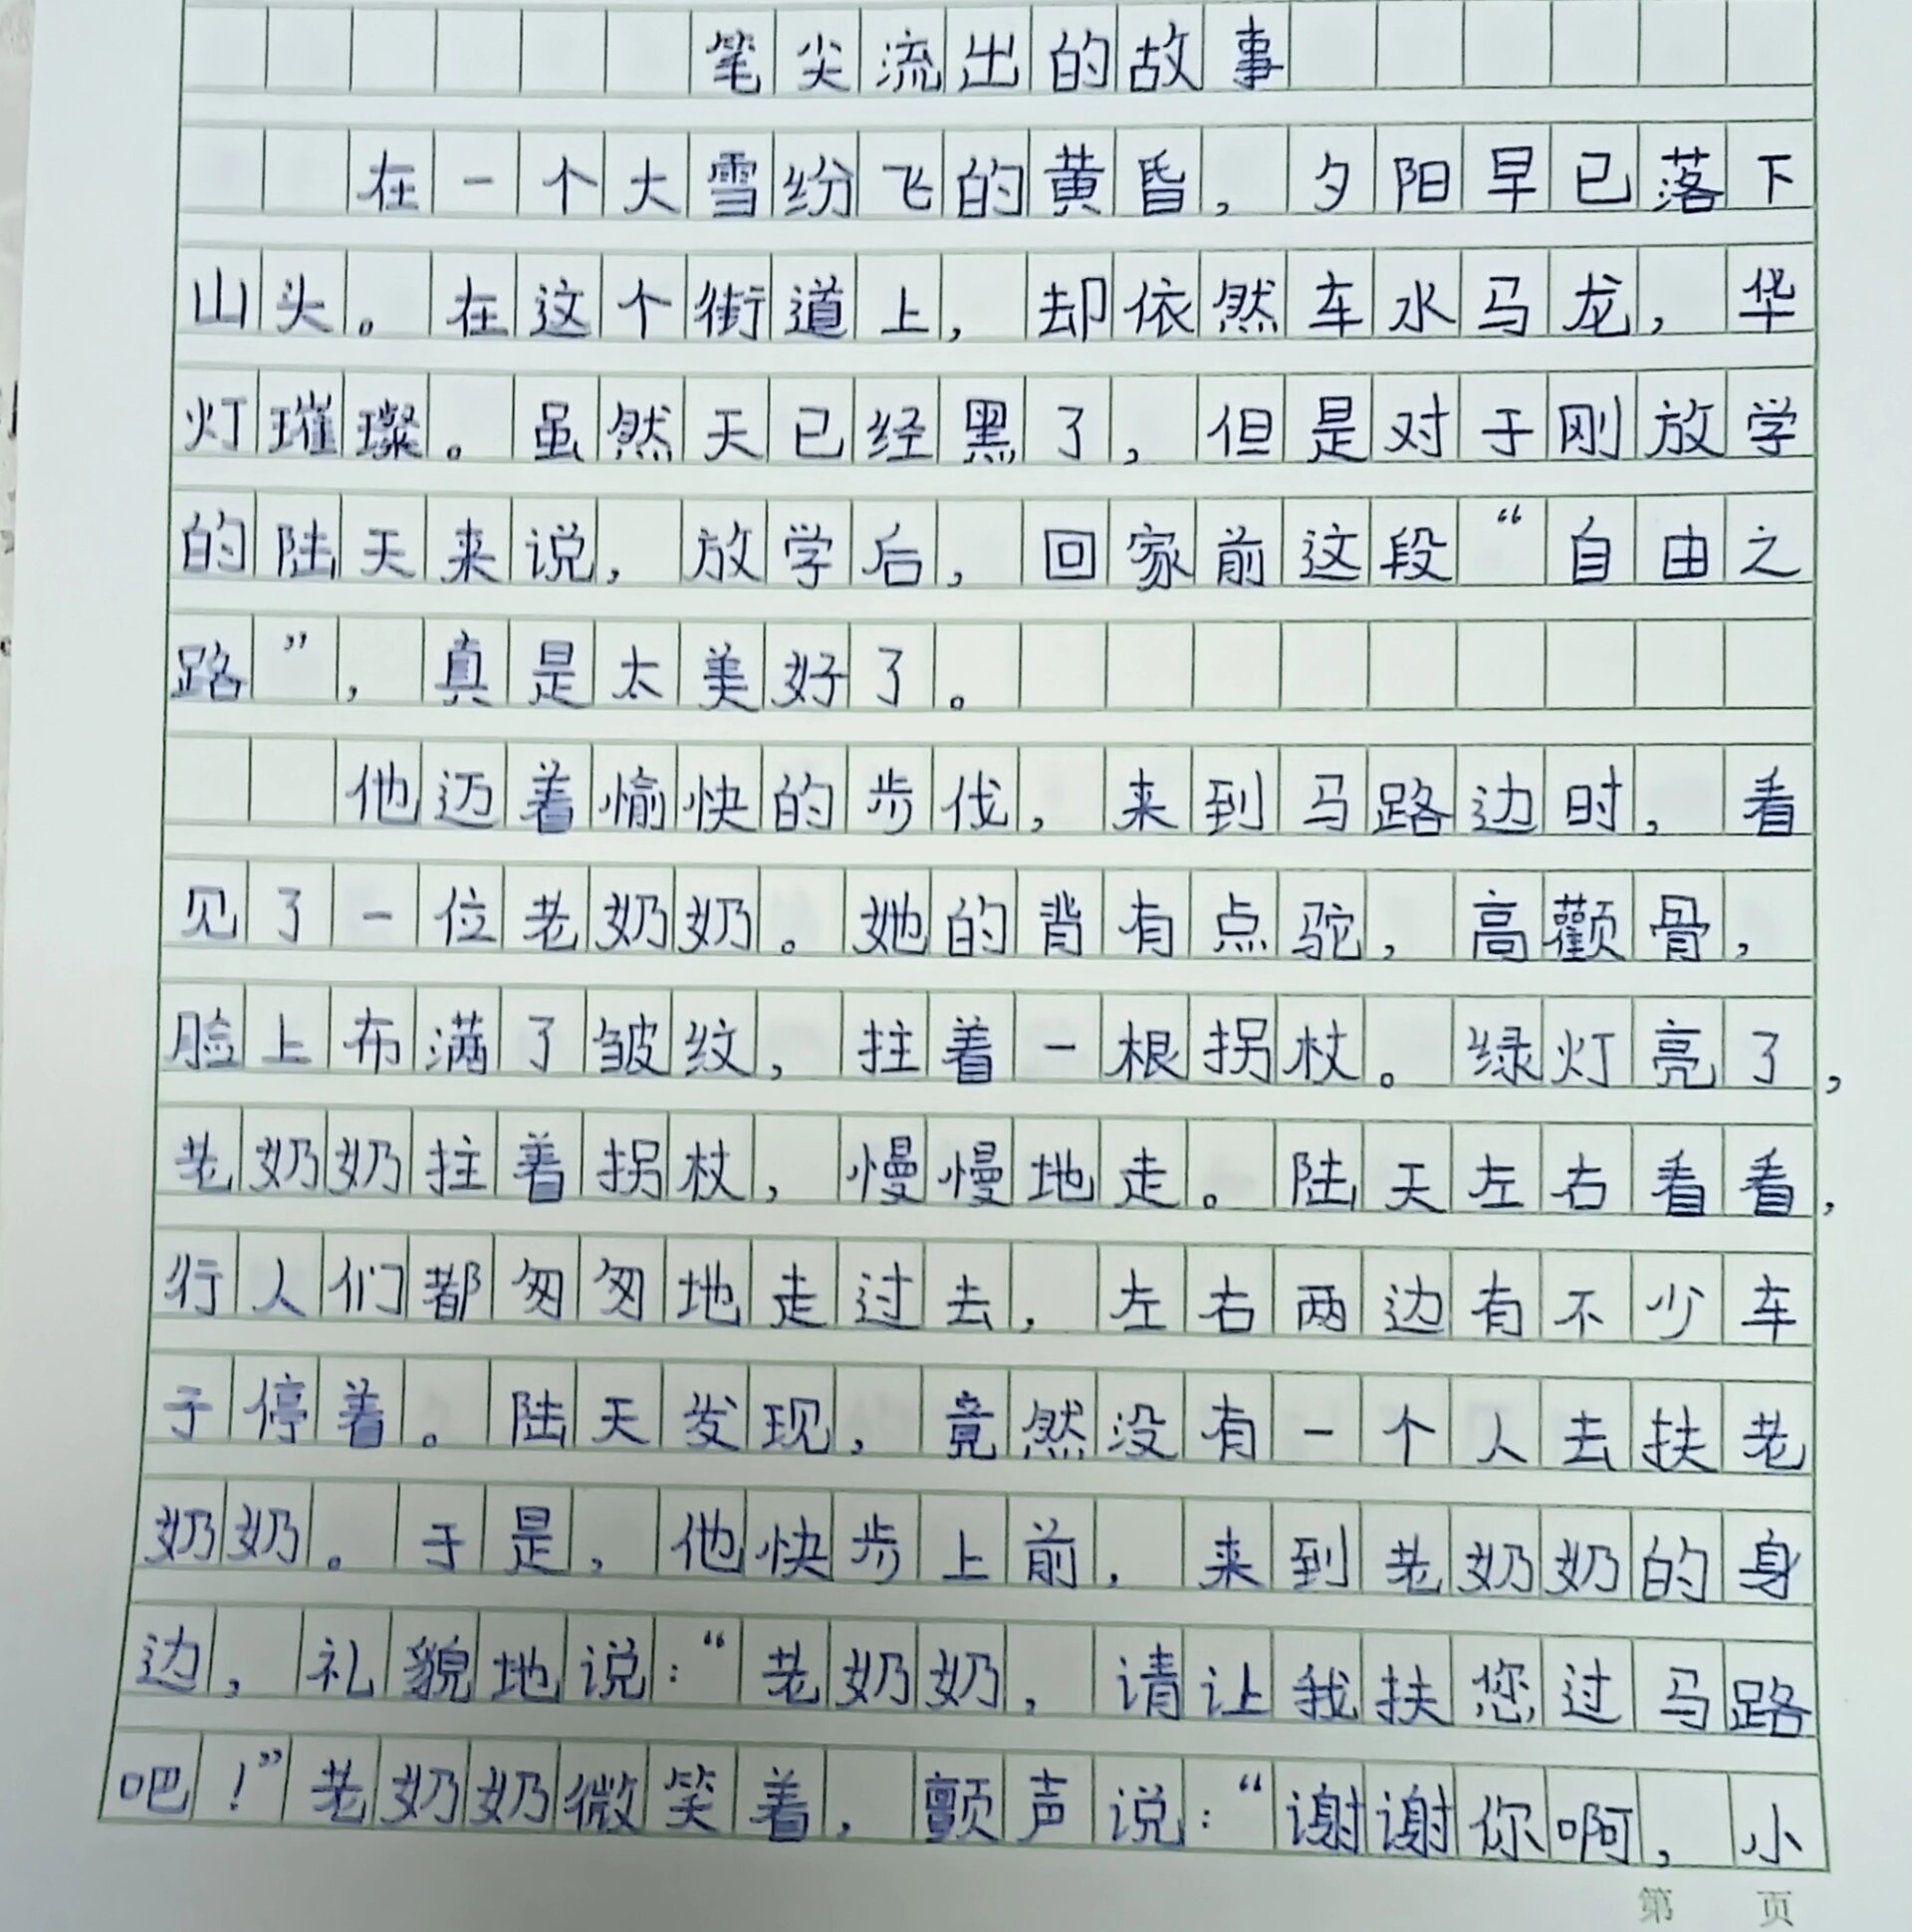 笔尖流出的故事
在一个大雪纷飞的黄昏，夕阳早已落下
山头。在这个街道上，却依然车水马龙，华
灯璀璨。虽然天已经黑了，但是对于刚放学
的陆天来说，放学后，回家前这段“自由之
路”，真是太美好了。
他迈着愉快的步伐，来到马路边时，看
见了一位老奶奶。她的背有点驼，高颧骨，
脸上布满了皱纹，拄着一根拐杖。绿灯亮了，
老奶奶拄着拐杖，慢慢地走。陆天左右看看，
行人们都匆匆地走过去，左右两边有不少车
子停着。陆天发现，竟然没有一个人去扶老
奶奶。于是，他快步上前，来到老奶奶的身
边，礼貌地说：“老奶奶，请让我扶您过马路
吧！”老奶奶微笑着，颤声说：“谢谢你啊，小
第 页